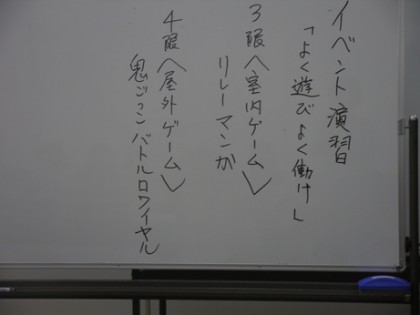 イベント演習
「よく遊びよく働け」
3限〈室内ゲーム〉
リレーマンガ
4限〈屋外ゲーム〉
鬼ごっこバトルロワイヤル